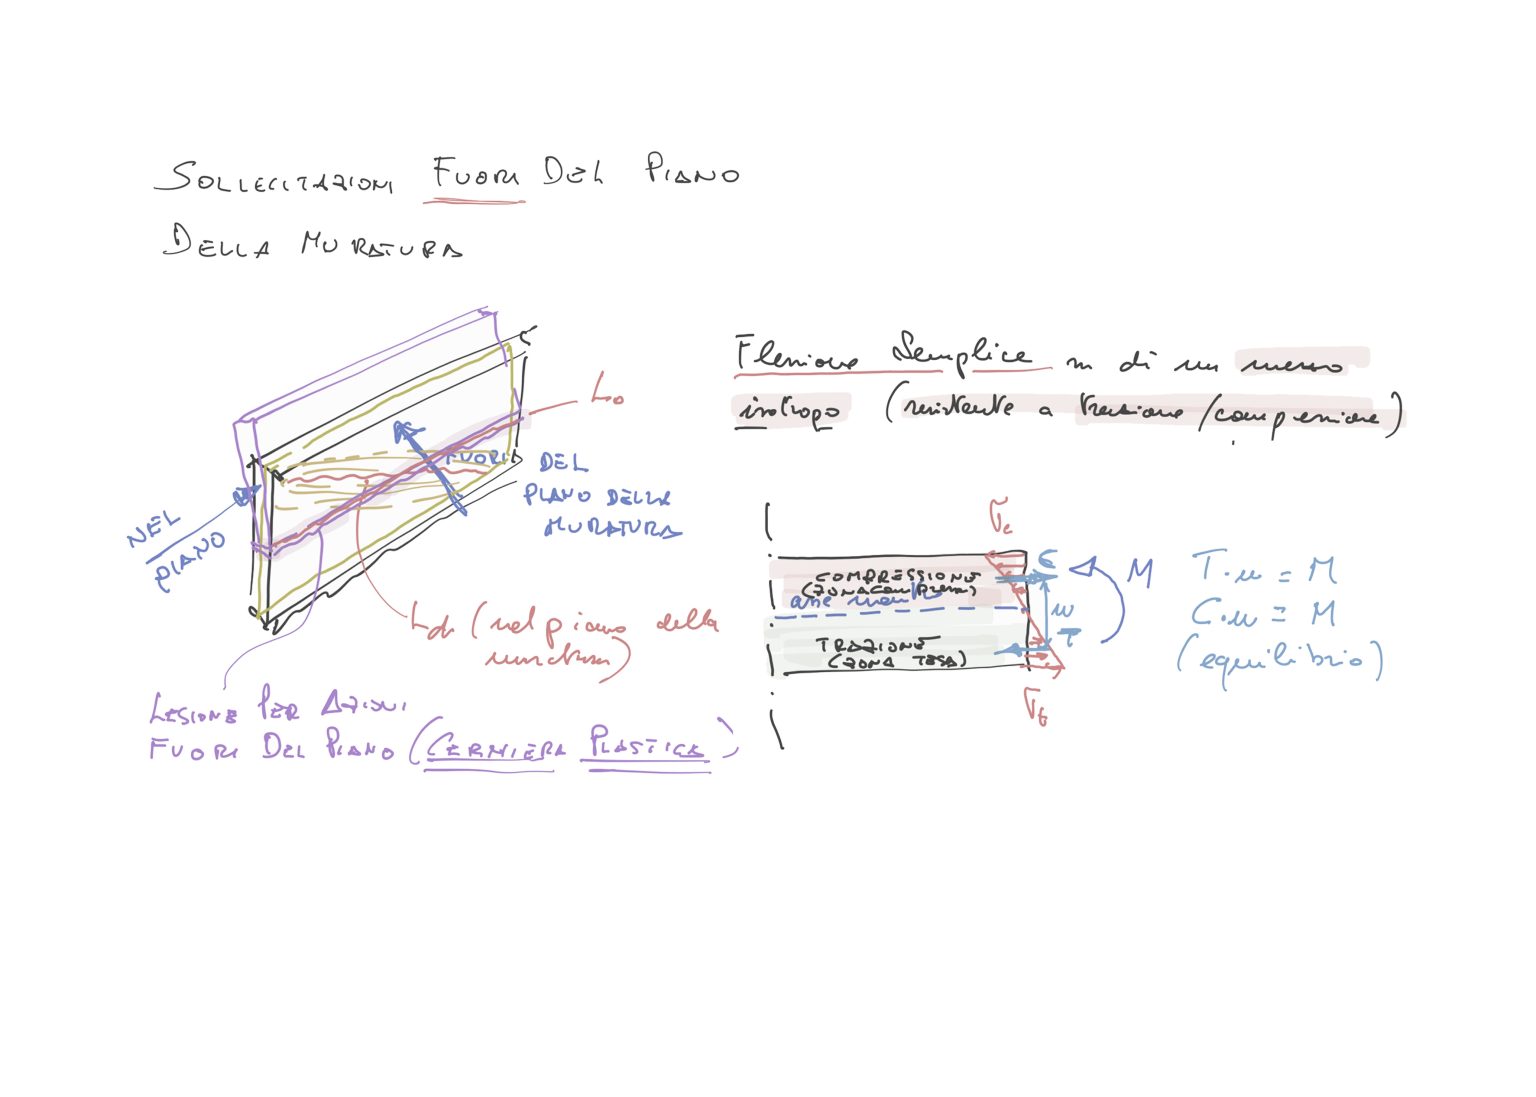 SOLLECITAZIONI FUORI DEL PIANO
DELLA MURATURA
Flessione Semplice in di un mezzo
isotropo (resistente a trazione/compressione)
Lo
FUORI DEL
PIANO DELLA
MURATURA
NEL
PIANO
Ld (nel piano della
muratura)
LESIONE PER AZIONI
FUORI DEL PIANO (CERNIERA PLASTICA)
σc
COMPRESSIONE
(ZONA COMPRESSA)
asse neutro
TRAZIONE
(ZONA TESA)
C
T
M
σt
T·u = M
C·u = M
(equilibrio)